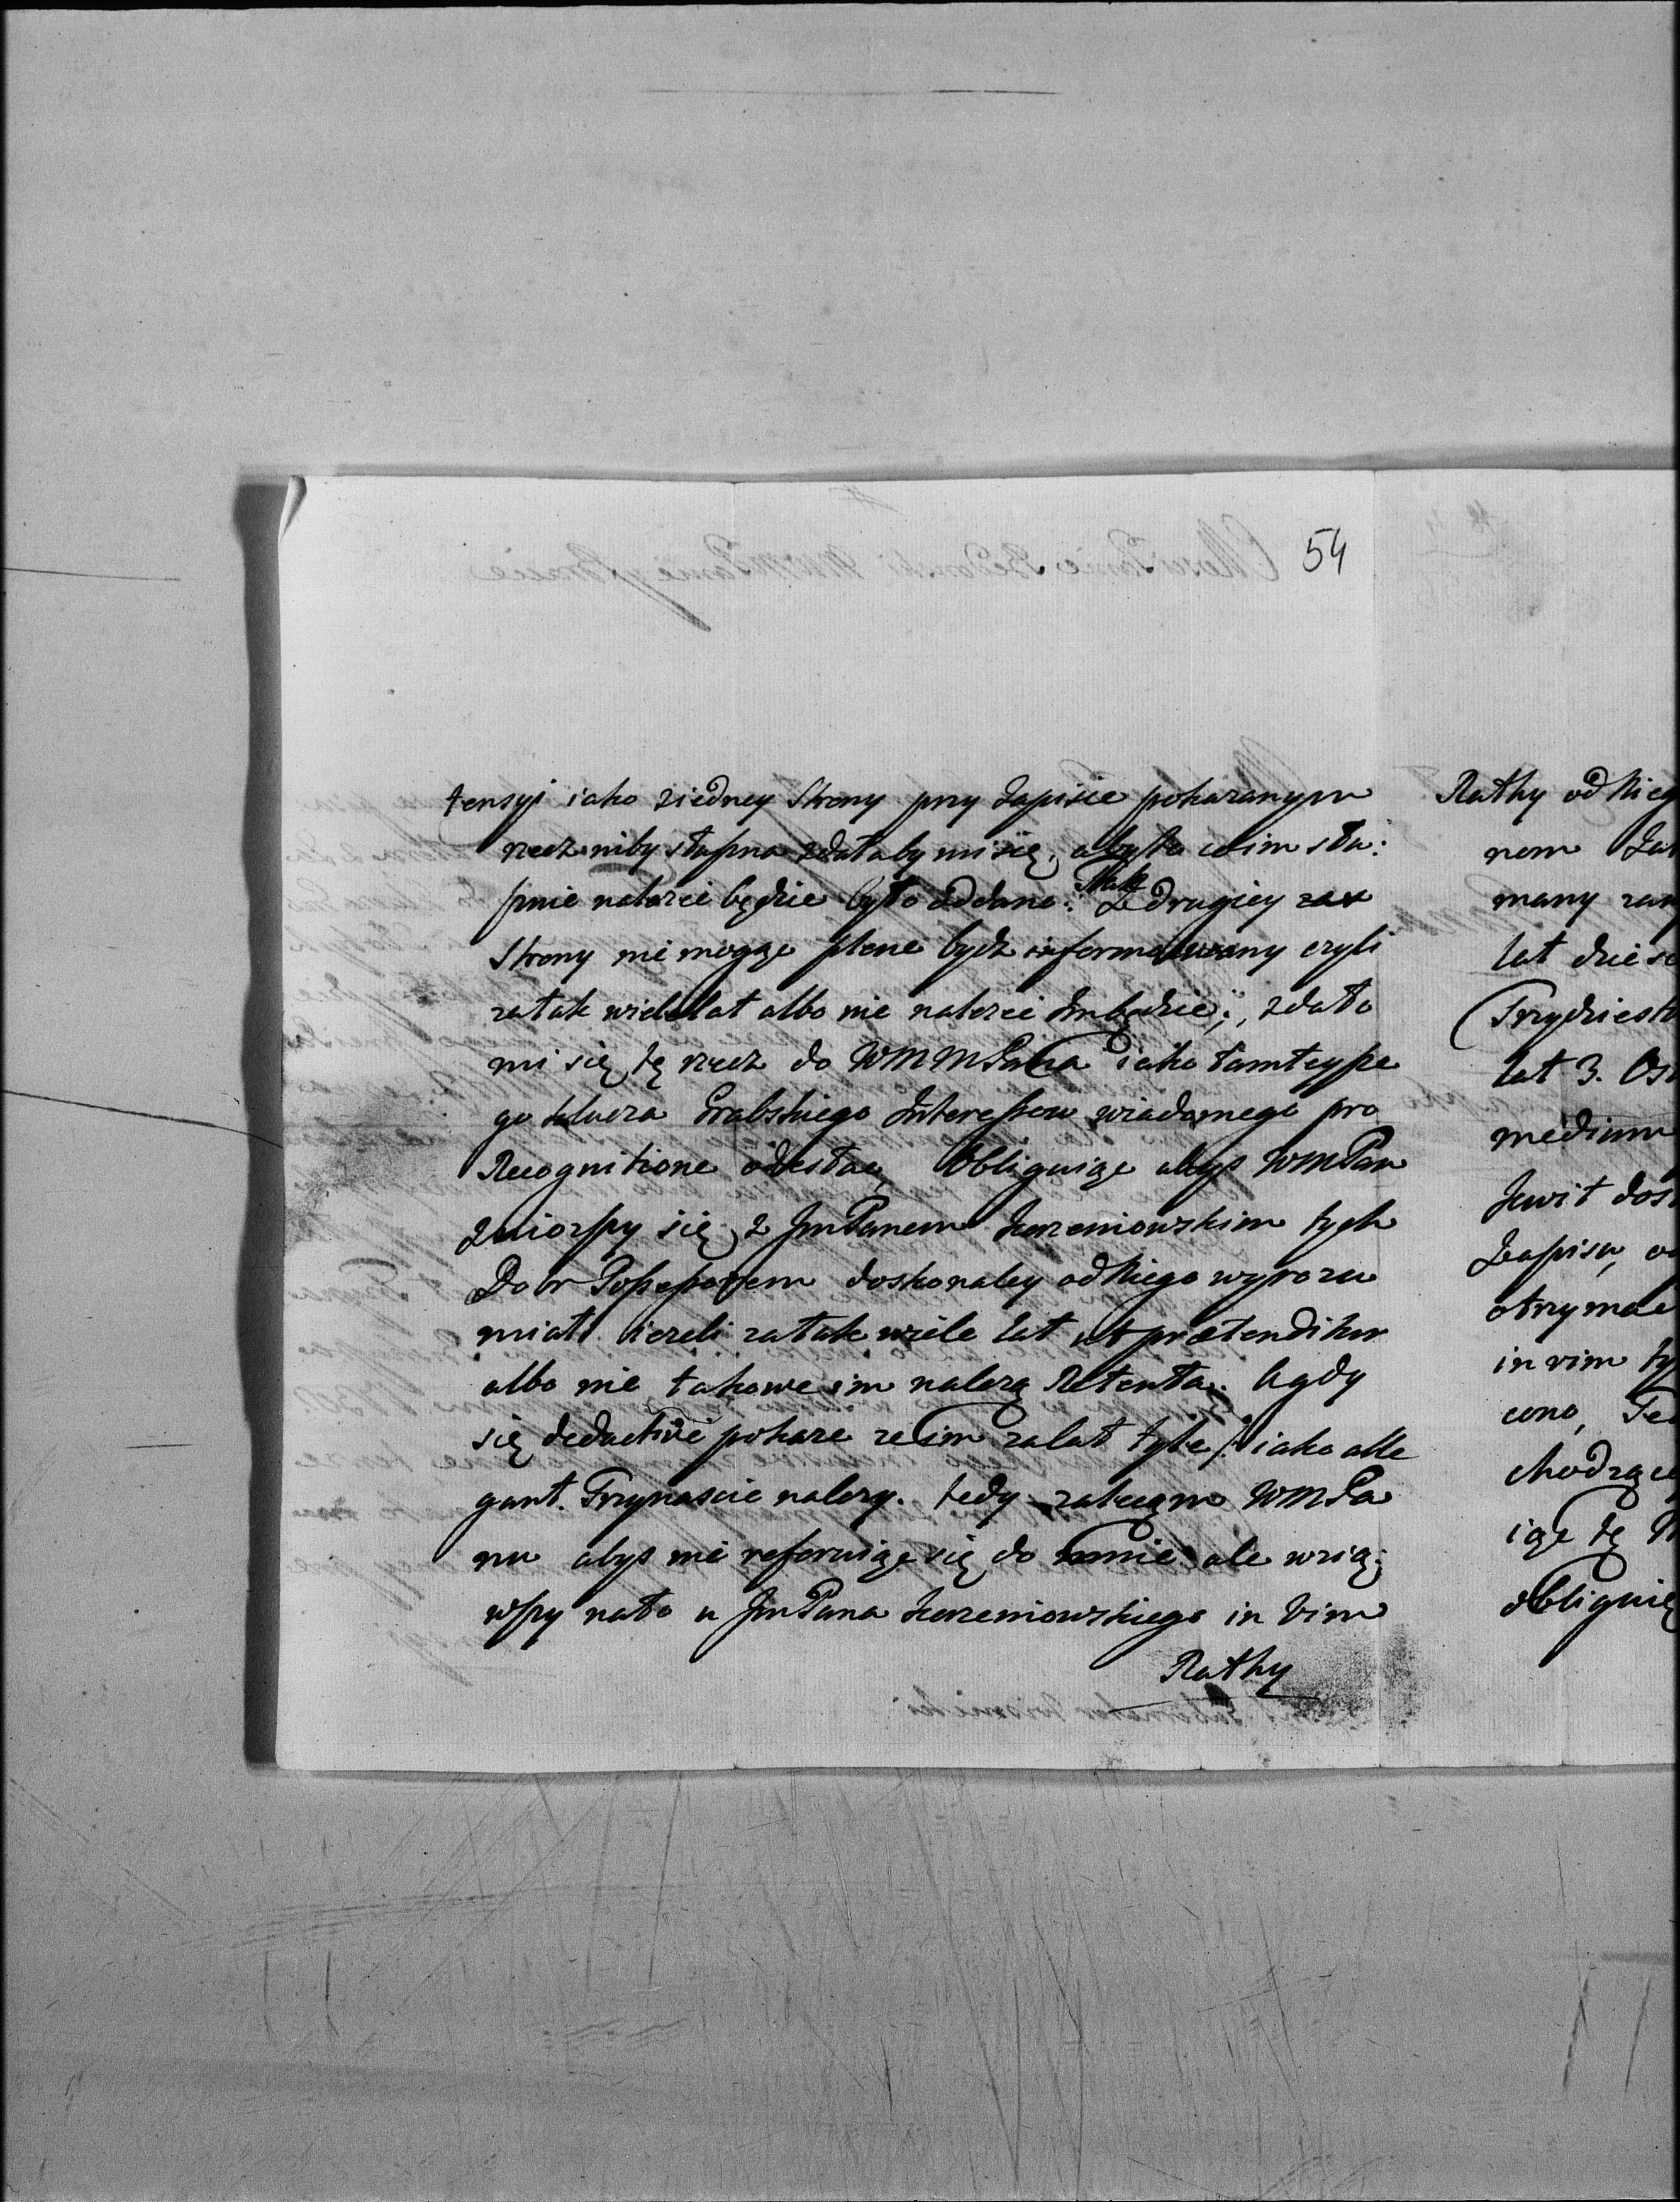 54
tensyi iako ziedney Strony przy Zapisie pokazanym
rzecz niby słuszna zdałaby mi się, aby to co im słu:
sznie nalezeć będzie było oddano. Tak Zdrugiey zas
Strony nie mogąc plene bydz informowany czyli
zatak wiele lat albo nie nalezeć Im będzie, zdało
mi się tę rzecz do WMMPana iako tamteysze
go klucza Grabskiego Interessow wiadomego pro
Recognitione odesłac, Obliguiąc abys WMPan
Zniozszy się z JmPanem Korzeniowskim tych
Dobr Possessorem doskonaley od Niego wyrozu
miał iezeli zatak wiele lat ut prætenditur
albo nie takowe im nalezą Retenta. A gdy
się deductive pokaze ze im zalat tyle iako alle
gant. Trzynascie nalezy. tedy zalecam WMPa
nu abys nie referuiąc się do mnie ale wzią:
wszy nato u JmPana Korzeniowskiego in Vim
Rathy
Rathy od Nieg
nem
many
lat
Trzydziest
lat 3.
medium
kwit dos
Zapisu,
otrzyma
in vim ty
cono,
chodzące
iąc tę
obliguię